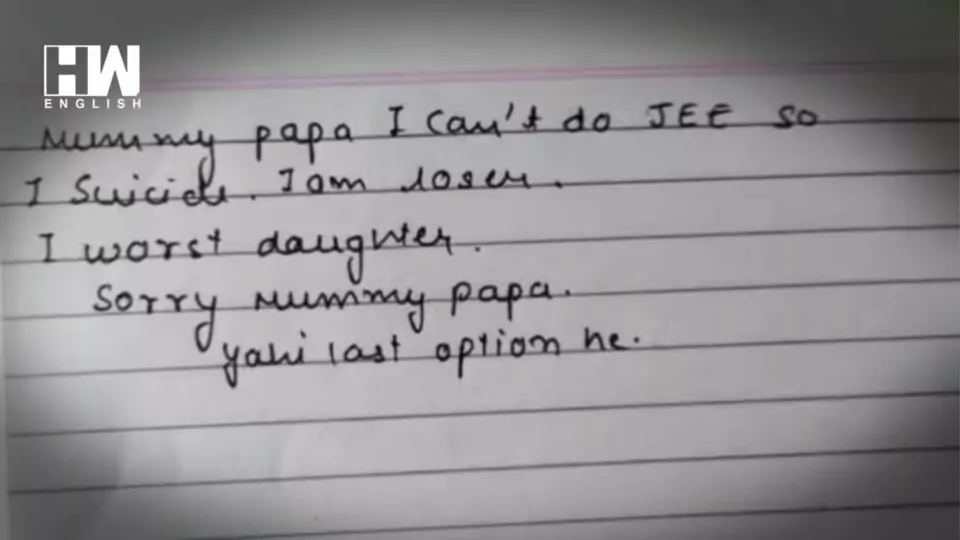 HW
ENGLISH
Mummy papa I can't do JEE so
I suicide. I am loser.
I worst daughter.
Sorry Mummy papa.
yahi last option he.